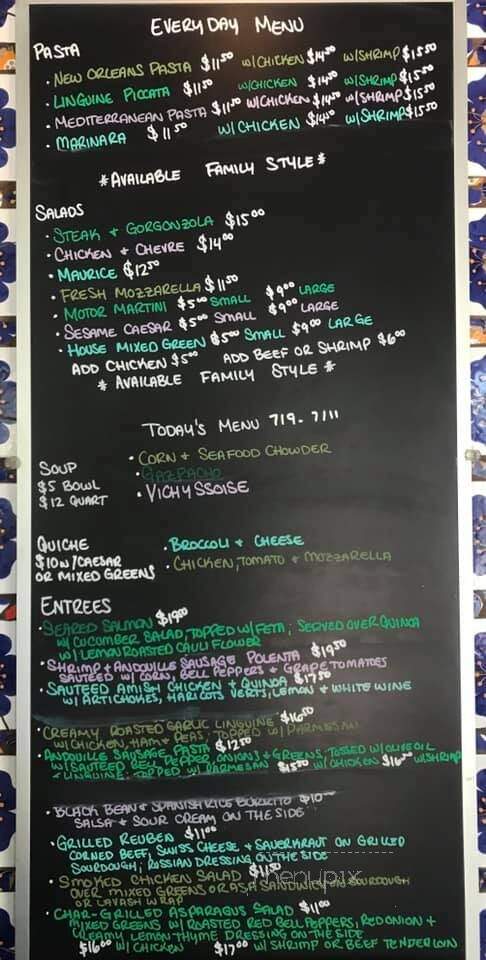 EVERYDAY MENU
PASTA
· NEW ORLEANS PASTA $11.50 W/CHICKEN $14.50 W/SHRIMP $15.50
· LINGUINE PICCATA $11.50 W/CHICKEN $14.50 W/SHRIMP $15.50
· MEDITERRANEAN PASTA $11.50 W/CHICKEN $14.50 W/SHRIMP $15.50
· MARINARA $11.50 W/CHICKEN $14.50 W/SHRIMP $15.50
*AVAILABLE FAMILY STYLE*
SALADS
· STEAK + GORGONZOLA $15.00
· CHICKEN + CHEVRE $14.00
· MAURICE $12.50
· FRESH MOZZARELLA $11.50
· MOTOR MARTINI $5.00 SMALL $9.00 LARGE
· SESAME CAESAR $5.00 SMALL $9.00 LARGE
· HOUSE MIXED GREEN $5.00 SMALL $9.00 LARGE
ADD CHICKEN $5.00 ADD BEEF OR SHRIMP $6.00
* AVAILABLE FAMILY STYLE *
TODAY'S MENU 7/9 - 7/11
SOUP
$5 BOWL
$12 QUART
· CORN + SEAFOOD CHOWDER
· GAZPACHO
· VICHYSSOISE
QUICHE
$10 W/CAESAR
OR MIXED GREENS
· BROCCOLI + CHEESE
· CHICKEN, TOMATO + MOZZARELLA
ENTREES
· SEARED SALMON $19.00
W/ CUCUMBER SALAD, TOPPED W/ FETA; SERVED OVER QUINOA
W/ LEMON ROASTED CAULIFLOWER
· SHRIMP + ANDOUILLE SAUSAGE POLENTA $19.50
SAUTEED W/ CORN, BELL PEPPERS + GRAPE TOMATOES
· SAUTEED AMISH CHICKEN + QUINOA $17.50
W/ ARTICHOKES, HARICOTS VERTS, LEMON + WHITE WINE
· CREAMY ROASTED GARLIC LINGUINE $16.50
W/ CHICKEN, HAM + PEAS; TOPPED W/ PARMESAN
· ANDOUILLE SAUSAGE PASTA $12.50
W/ SAUTEED BELL PEPPER, ONIONS + GREENS, TOSSED W/ OLIVE OIL
+ LINGUINE; TOPPED W/ PARMESAN $15.50 W/ CHICKEN $16.50 W/ SHRIMP
· BLACK BEAN + SPANISH RICE BURRITO $10
SALSA + SOUR CREAM ON THE SIDE
· GRILLED REUBEN $11.00
CORNED BEEF, SWISS CHEESE + SAUERKRAUT ON GRILLED
SOURDOUGH; RUSSIAN DRESSING ON THE SIDE
· SMOKED CHICKEN SALAD $11.50
OVER MIXED GREENS OR AS A SANDWICH IN SOURDOUGH
OR LAVASH WRAP
· CHAR-GRILLED ASPARAGUS SALAD $11.00
MIXED GREENS W/ ROASTED RED BELL PEPPERS, RED ONION +
CREAMY LEMON THYME DRESSING ON THE SIDE
$16.00 W/ CHICKEN $17.00 W/ SHRIMP OR BEEF TENDERLOIN
menupix